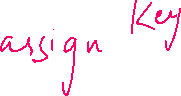 assign Key